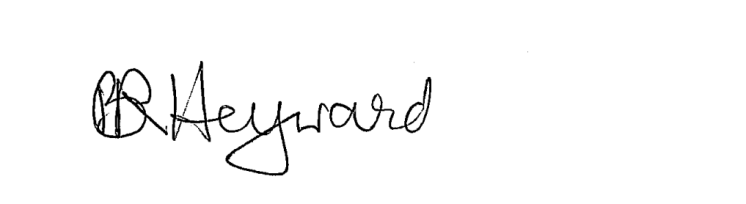 BR Heyward